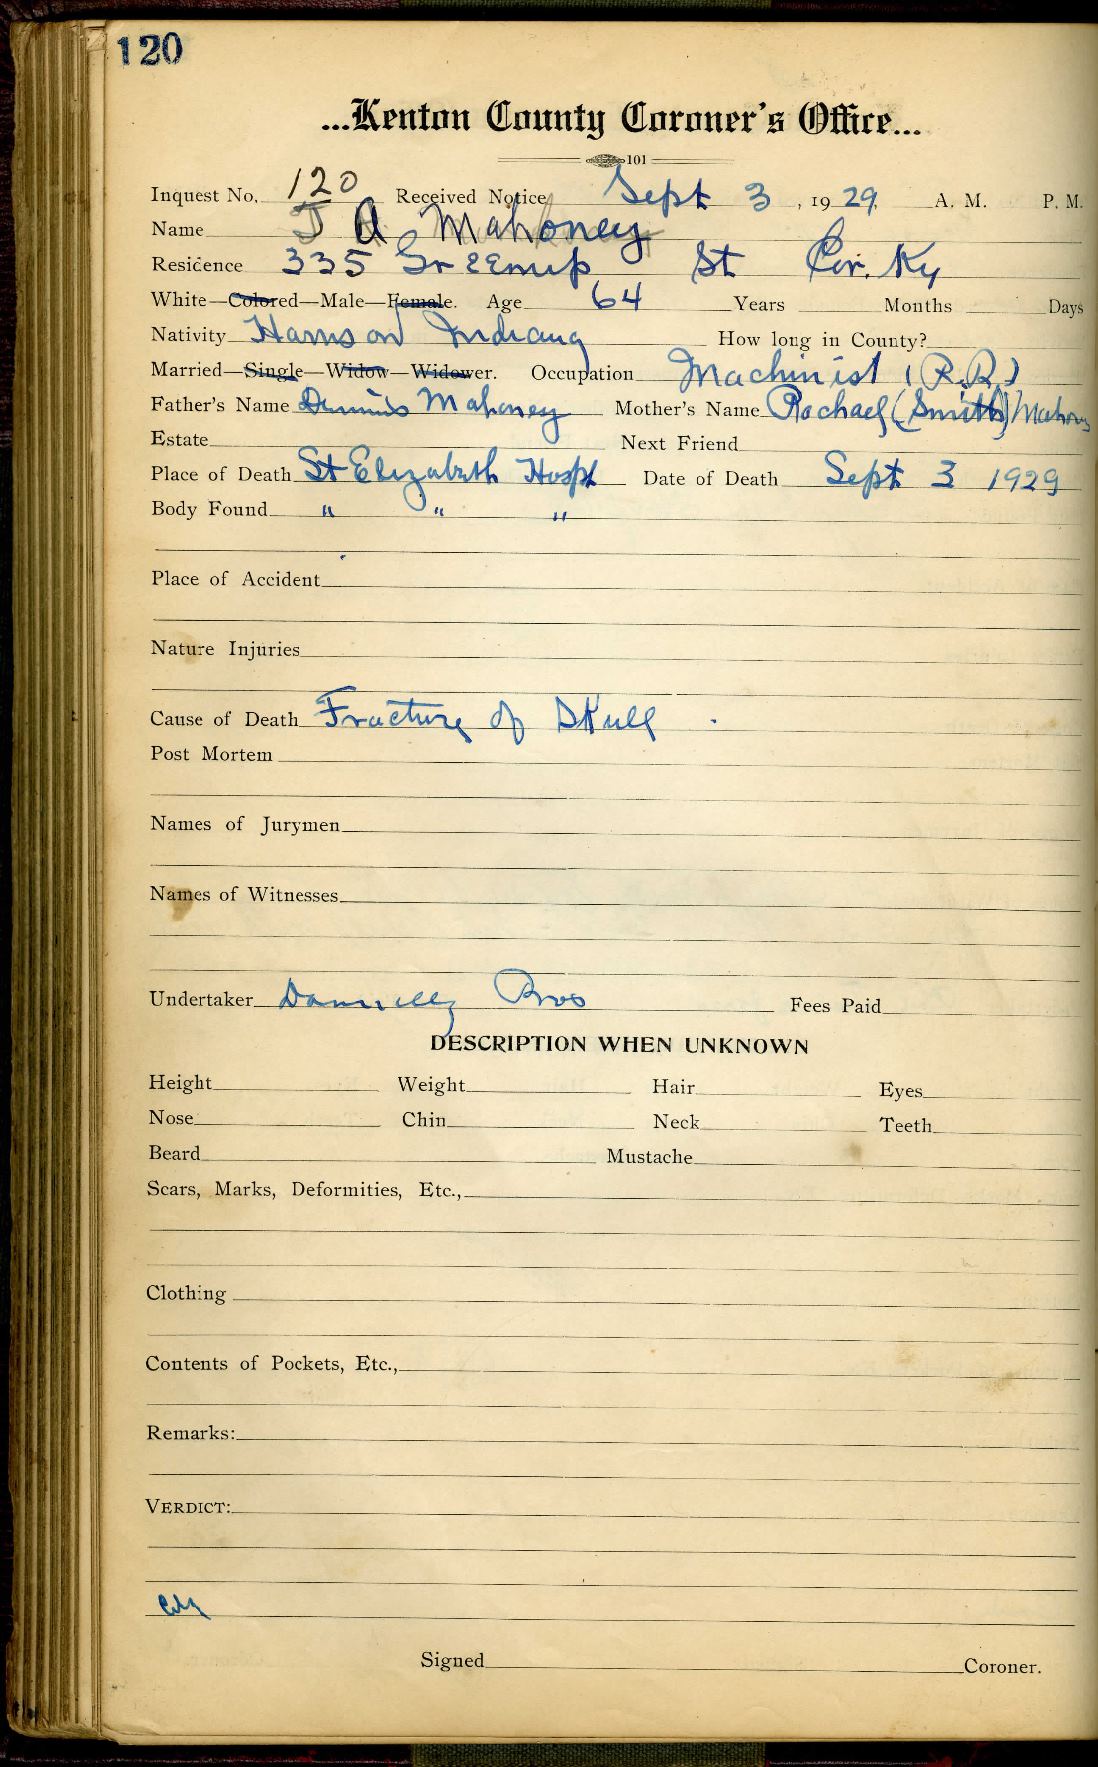 120
...Kenton County Coroner's Office...
101
Inquest No. 120 Received Notice Sept 3, 1929. A. M. P. M.
Name J A Mahoney
Residence 335 Greenup St Cov. Ky
White—Colored—Male—Female. Age 64 Years Months Days
Nativity Harrison Indiana How long in County?
Married—Single—Widow—Widower. Occupation Machinist (R.R.)
Father's Name Dennis Mahoney Mother's Name Rachael (Smith) Mahoney
Estate Next Friend
Place of Death St Elizabeth Hospt Date of Death Sept 3 1929
Body Found " " "
Place of Accident
Nature Injuries
Cause of Death Fracture of Skull
Post Mortem
Names of Jurymen
Names of Witnesses
Undertaker Donnelly Bros Fees Paid
DESCRIPTION WHEN UNKNOWN
Height Weight Hair Eyes
Nose Chin Neck Teeth
Beard Mustache
Scars, Marks, Deformities, Etc.,
Clothing
Contents of Pockets, Etc.,
Remarks:
VERDICT:
Signed Coroner.